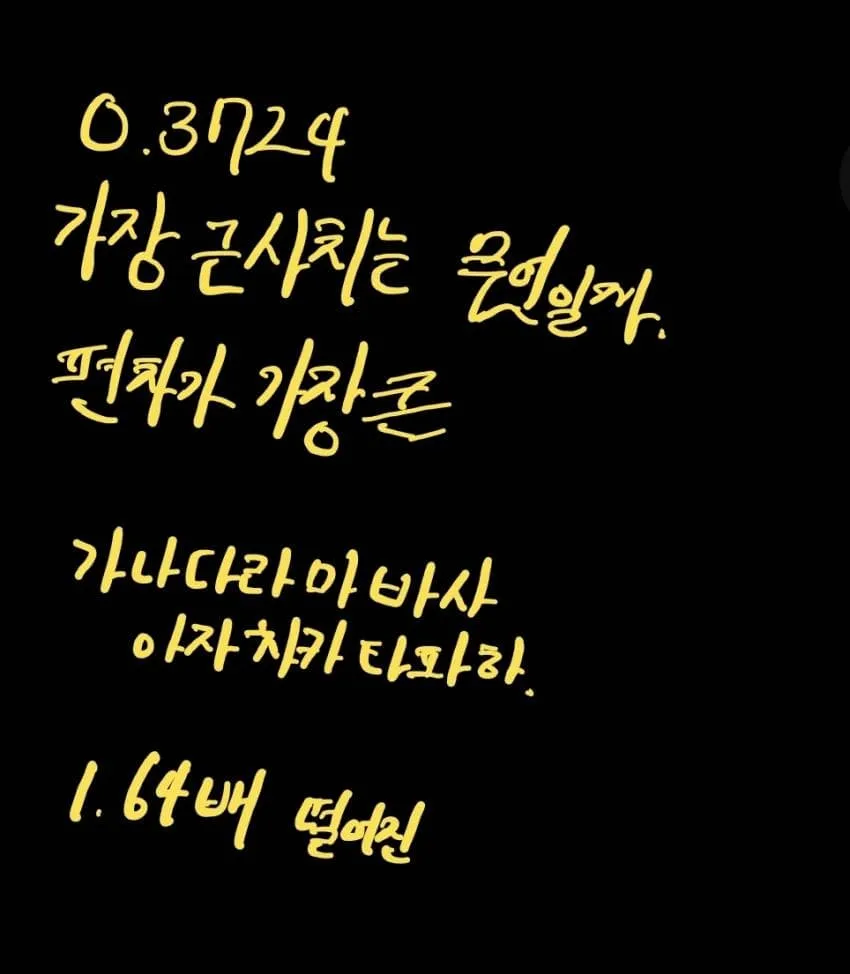 0.3724
가장 근사치는 무엇일까.
편차가 가장 큰
가나다라마바사
아자차카타파하.
1.64배 떨어진